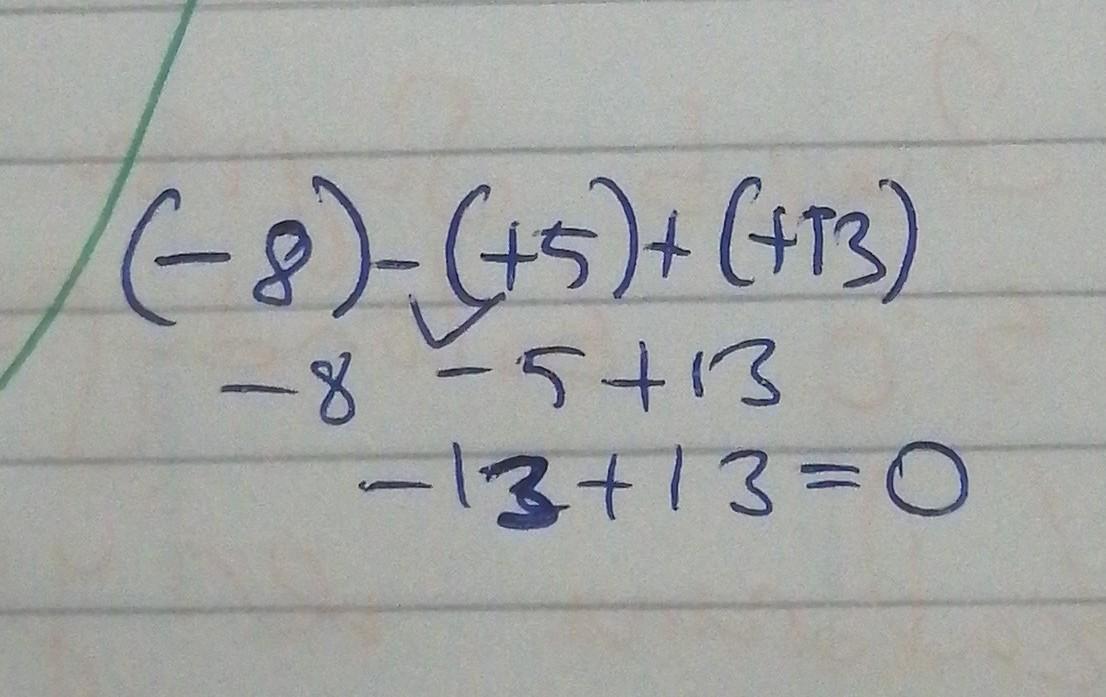 (-8)-(+5)+(+13)
-8 -5+13
-13+13=0